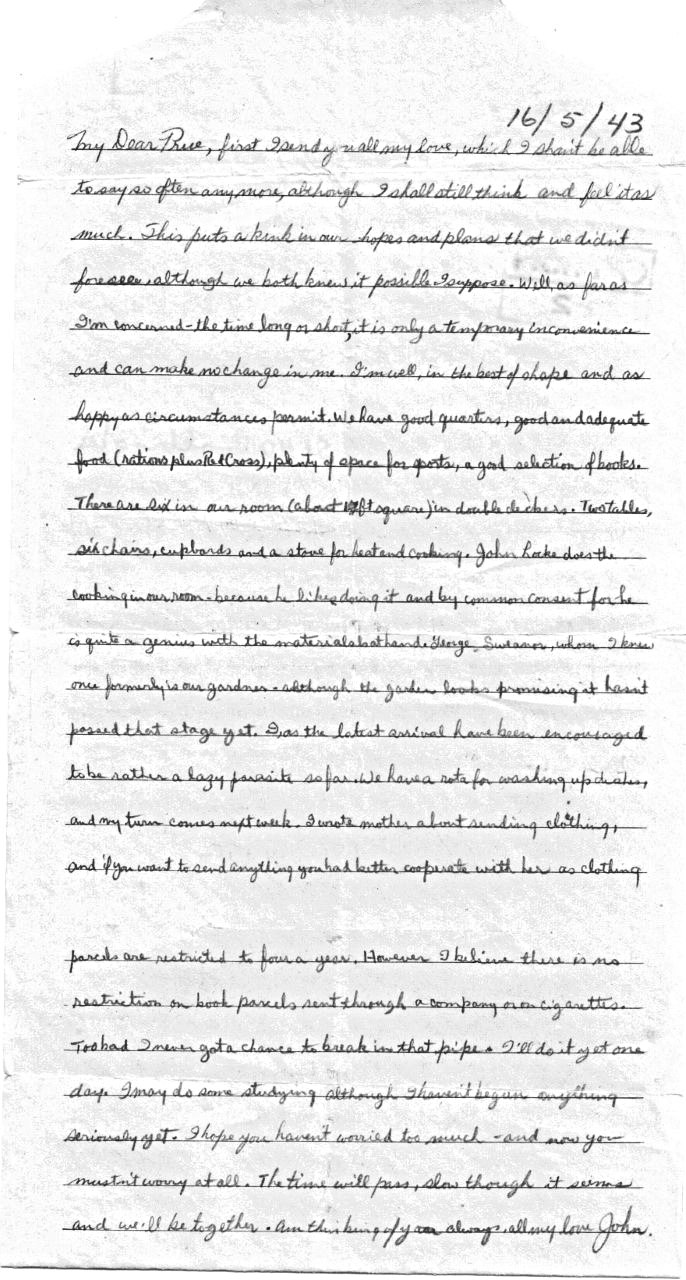 16/5/43
My Dear Prue, first I send you all my love, which I shan't be able
to say so often anymore, although I shall still think and feel it as
much. This puts a kink in our hopes and plans that we didn't
foresee, although we both knew it possible I suppose. Well, as far as
I'm concerned - the time long or short, it is only a temporary inconvenience
and can make no change in me. I'm well, in the best of shape and as
happy as circumstances permit. We have good quarters, good and adequate
food (rations plus Red Cross), plenty of space for sports, a good selection of books.
There are six in our room (about ft square) in double deckers. Two tables,
six chairs, cupboards and a stove for heat and cooking. John Locke does the
cooking in our room - because he likes doing it and by common consent for he
is quite a genius with the materials at hand. George Sweanor, whom I knew
once formerly is our gardner - although the garden looks promising it hasn't
passed that stage yet. I, as the latest arrival have been encouraged
to be rather a lazy parasite so far. We have a rota for washing up dishes,
and my turn comes next week. I wrote mother about sending clothing,
and if you want to send anything you had better cooperate with her as clothing
parcels are restricted to four a year. However I believe there is no
restriction on book parcels sent through a company or on cigarettes.
Too bad I never got a chance to break in that pipe. I'll do it yet one
day. I may do some studying although I haven't begun anything
seriously yet. I hope you haven't worried too much - and now you
mustn't worry at all. The time will pass, slow though it seems
and we'll be together. Am thinking of you always. all my love John.